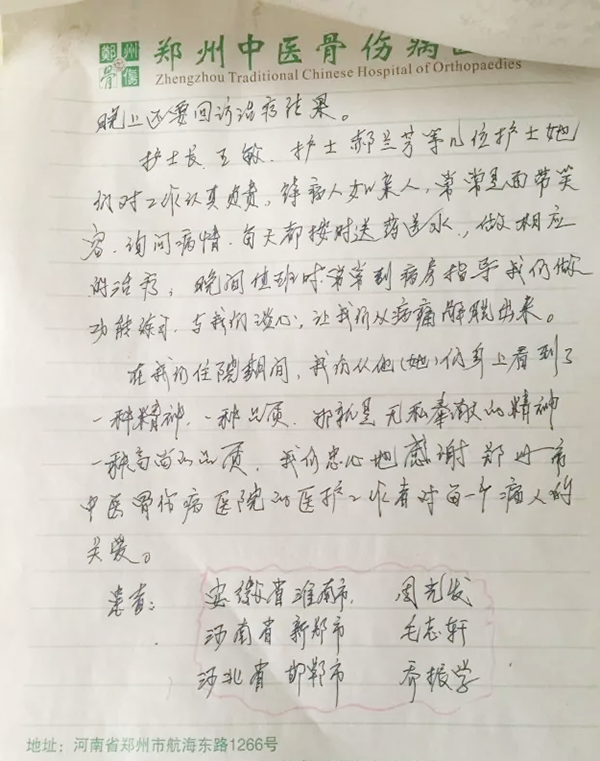 鄭州
骨傷
郑州中医骨伤病医
Zhengzhou Traditional Chinese Hospital of Orthopaedies
晚上还要回访治疗结果。
护士长王敏、护士郝兰芳等几位护士她
们对工作认真负责，待病人如亲人，常常是面带笑
容、询问病情、每天都按时送药送水，做相应
的治疗，晚间值班时常常到病房指导我们做
功能练习、与我们谈心，让我们从病痛解脱出来。
在我们住院期间，我们从他(她)们身上看到了
一种精神、一种品质、那就是无私奉献的精神
一种高尚的品质，我们忠心地感谢郑州市
中医骨伤病医院的医护工作者对每一个病人的
关爱。
患者：安徽省淮南市，周克发
河南省新郑市 毛志轩
河北省邯郸市 乔振学
地址：河南省郑州市航海东路1266号